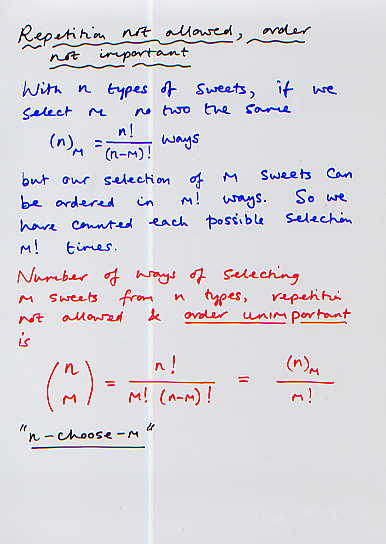 Repetition not allowed, order
not important
With n types of sweets, if we
select M no two the same
(n)_M = n!/(n-M)! ways
but our selection of M sweets can
be ordered in M! ways. So we
have counted each possible selection
M! times.
Number of ways of selecting
M sweets from n types, repetitio
not allowed & order unimportant
is
(n M) = n!/(M! (n-M)!) = (n)_M/M!
"n-choose-M"